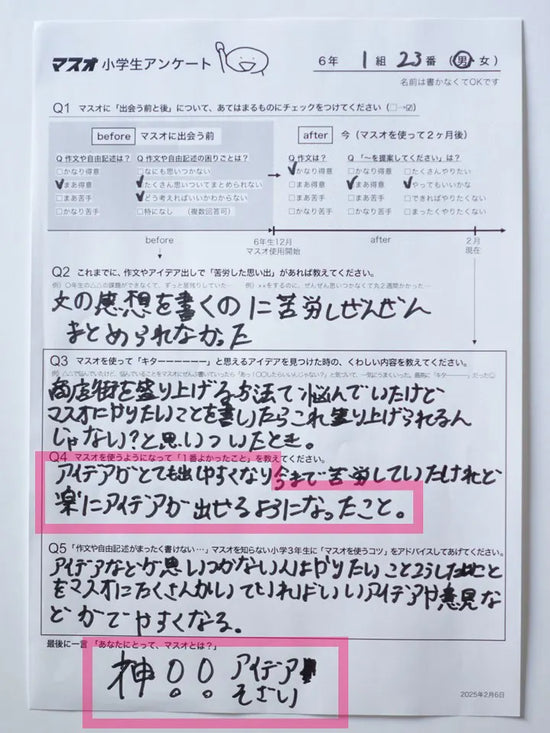 マスオ 小学生アンケート
6年 1組 23番 (男・女)
名前は書かなくてOKです
Q1 マスオに「出会う前と後」について、あてはまるものにチェックをつけてください (□→☑)
before マスオに出会う前
after 今 (マスオを使って2ヶ月後)
Q 作文や自由記述は? Q 作文や自由記述の困りごとは?
Q 作文は? Q 「〜を提案してください」は?
□かなり得意 □なにも思いつかない
☑まあ得意 ☑たくさん思いついてまとめられない
□まあ苦手 ☑どう考えればいいかわからない
□かなり苦手 □特になし (複数回答可)
☑かなり得意 □かなり得意 □たくさんやりたい
□まあ得意 ☑まあ得意 ☑やってもいいかな
□まあ苦手 □まあ苦手 □できればやりたくない
□かなり苦手 □かなり苦手 □まったくやりたくない
before
6年生12月
マスオ使用開始
after
2月
現在
Q2 これまでに、作文やアイデア出しで「苦労した思い出」があれば教えてください。
文の感想を書くのに苦労しぜんぜん
まとめられなかった
Q3 マスオを使って「キターーーーーー」と思えるアイデアを見つけた時の、くわしい内容を教えてください。
商店街を盛り上げる方法で悩んでいたけど
マスオにやりたいことを書いたらこれ盛り上げられるん
じゃない?と思いついたとき。
Q4 マスオを使うようになって「1番よかったこと」を教えてください。
アイデアがとても出しやすくなり今まで苦労していたけれど
楽にアイデアが出せるようになったこと。
Q5 「作文や自由記述がまったく書けない…」マスオを知らない小学3年生に「マスオを使うコツ」をアドバイスしてあげてください。
アイデアなどが思いつかない人はやりたいこと
をマスオにたくさんかいていればいいアイデアや意見な
どがでやすくなる。
最後に一言 「あなたにとって、マスオとは?」
神!! アイデア
そざい
2025年2月6日